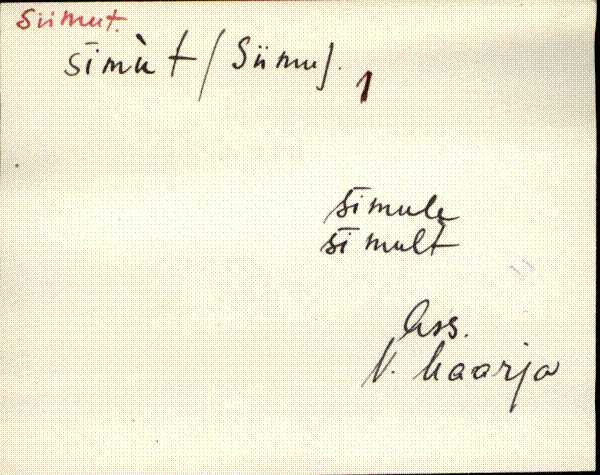 Siimut.
sīmù t / Siimu /. 1
sīmule
sīmult
Ass.
V. Maarja